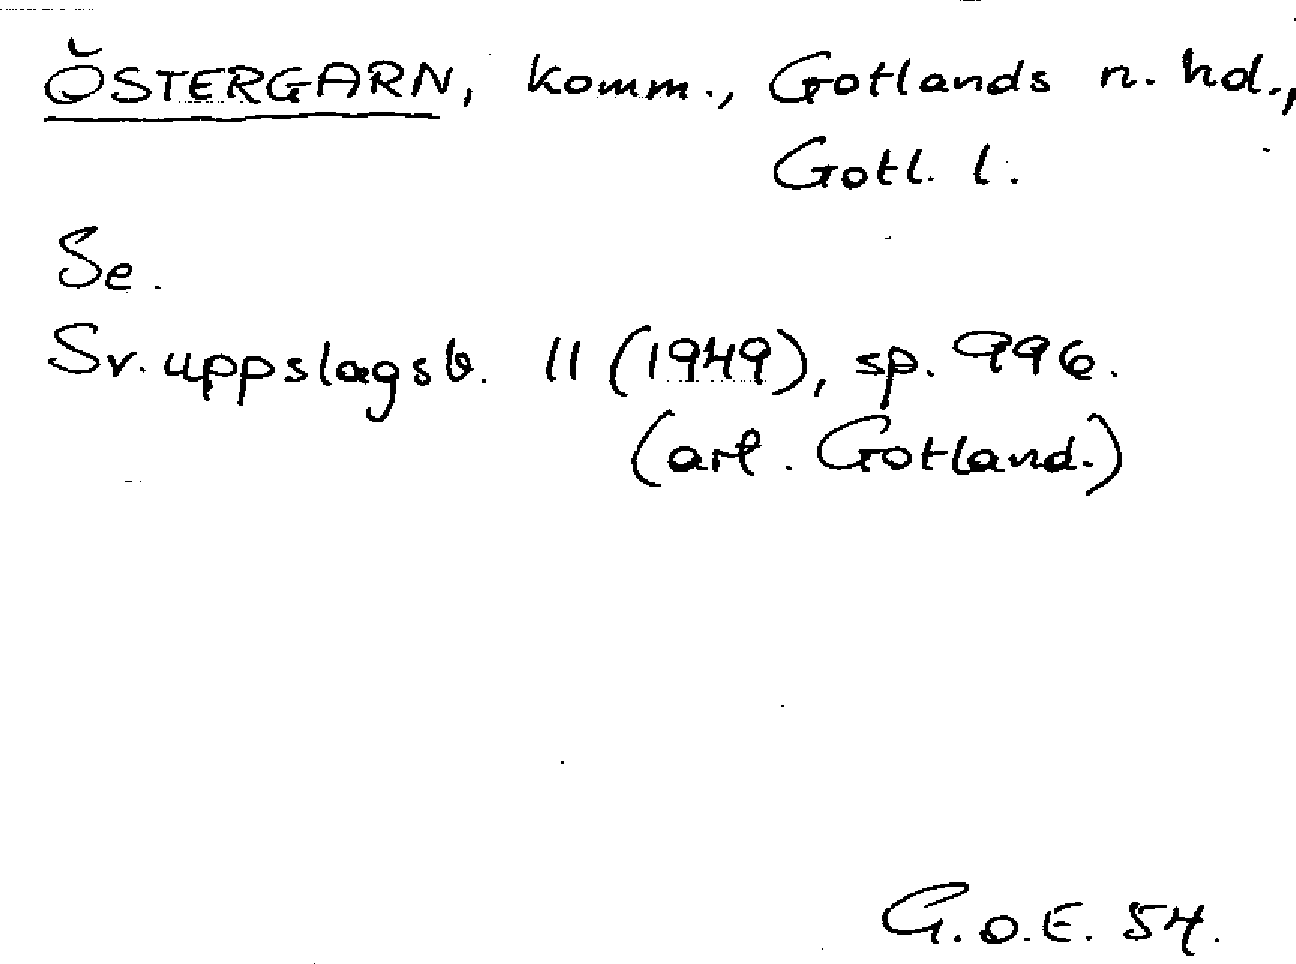 ÖSTERGARN, komm., Gotlands n. hd.,
Gotl. l.
Se.
Sv. uppslagsb. 11 (1949), sp. 996.
(art. Gotland.)
G.O.E. 54.